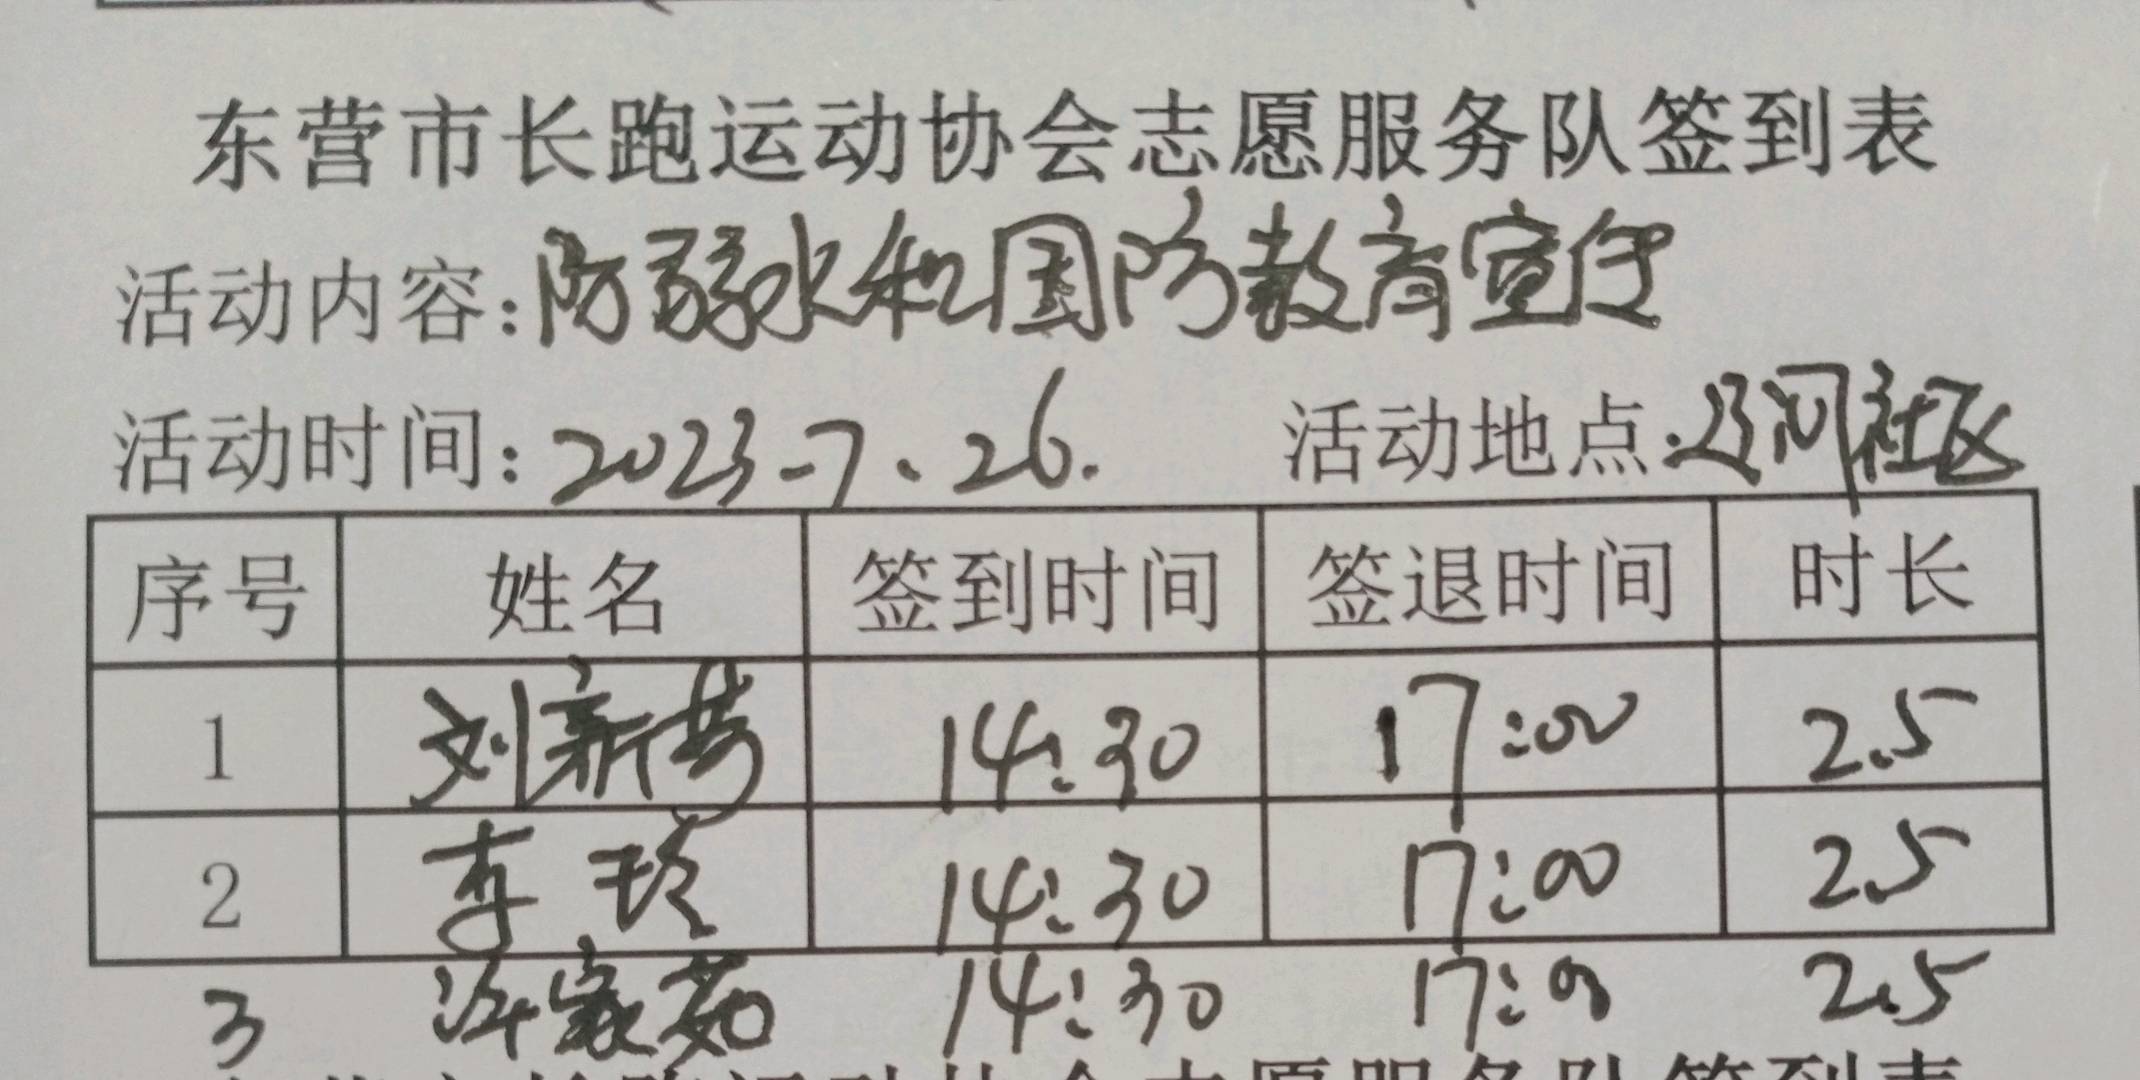 东营市长跑运动协会志愿服务队签到表
活动内容:防溺水和国防教育宣传
活动时间:2023-7.26. 活动地点:辽河社区
序号 姓名 签到时间 签退时间 时长
1 刘新芳 14:30 17:00 2.5
2 李玲 14:30 17:00 2.5
3 许家茹 14:30 17:00 2.5
东营市长跑运动协会志愿服务队签到表